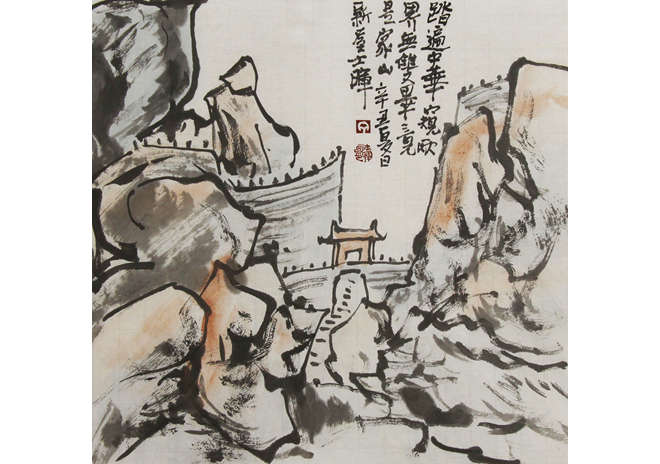 踏遍中華窺歐
界無雙畢竟
是家山 辛丑夏日
士暉